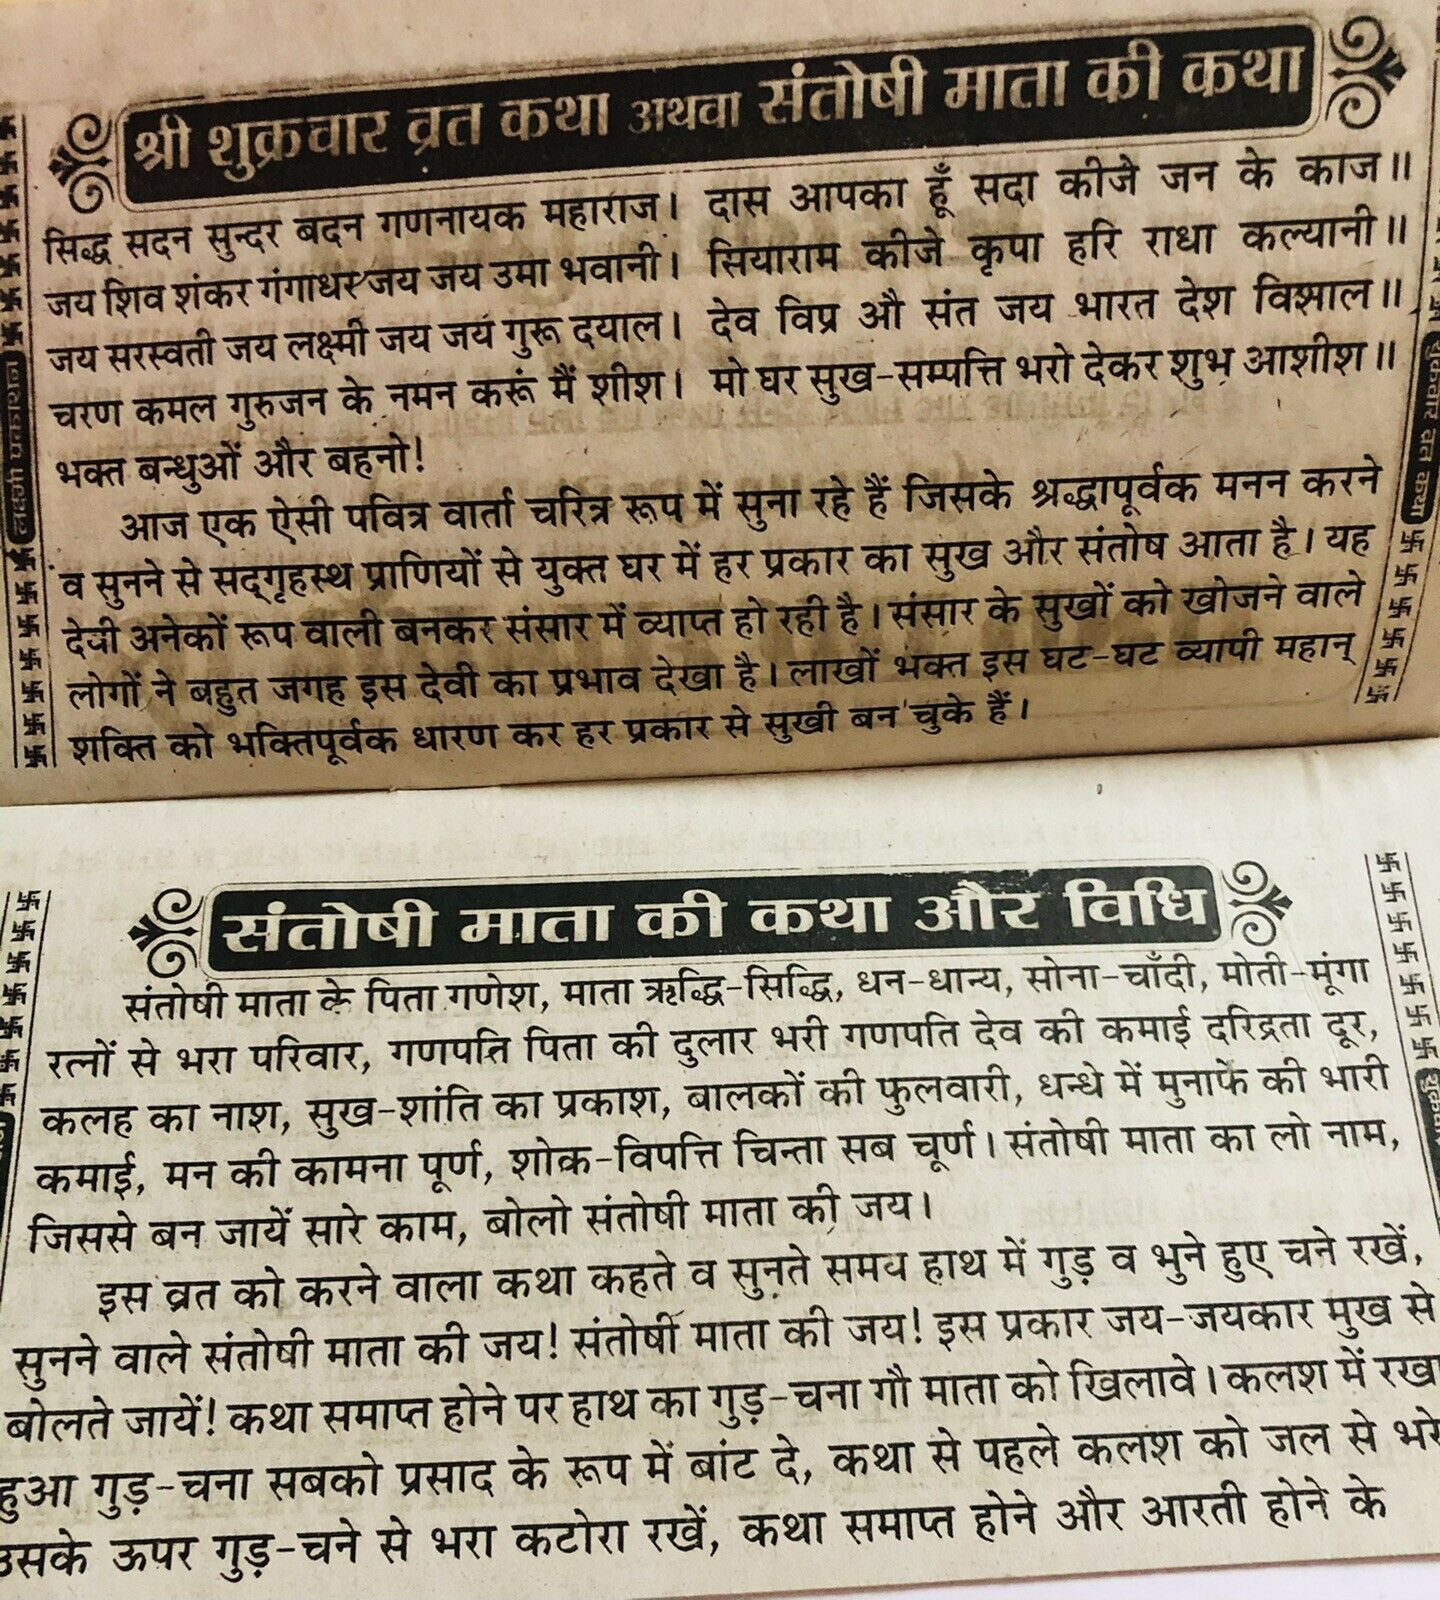 श्री शुक्रवार व्रत कथा अथवा संतोषी माता की कथा
सिद्ध सदन सुन्दर बदन गणनायक महाराज। दास आपका हूँ सदा कीजे जन के काज॥
जय शिव शंकर गंगाधर जय जय उमा भवानी। सियाराम कीजे कृपा हरि राधा कल्यानी॥
जय सरस्वती जय लक्ष्मी जय जय गुरू दयाल। देव विप्र औ संत जय भारत देश विशाल॥
चरण कमल गुरुजन के नमन करूं मैं शीश। मो घर सुख-सम्पत्ति भरो देकर शुभ आशीश॥
भक्त बन्धुओं और बहनो!
आज एक ऐसी पवित्र वार्ता चरित्र रूप में सुना रहे हैं जिसके श्रद्धापूर्वक मनन करने
व सुनने से सद्‌गृहस्थ प्राणियों से युक्त घर में हर प्रकार का सुख और संतोष आता है। यह
देवी अनेकों रूप वाली बनकर संसार में व्याप्त हो रही है। संसार के सुखों को खोजने वाले
लोगों ने बहुत जगह इस देवी का प्रभाव देखा है। लाखों भक्त इस घट-घट व्यापी महान्
शक्ति को भक्तिपूर्वक धारण कर हर प्रकार से सुखी बन चुके हैं।
शुक्रवार व्रत कथा
संतोषी माता की कथा और विधि
संतोषी माता के पिता गणेश, माता ऋद्धि-सिद्धि, धन-धान्य, सोना-चाँदी, मोती-मूंगा
रत्नों से भरा परिवार, गणपति पिता की दुलार भरी गणपति देव की कमाई दरिद्रता दूर,
कलह का नाश, सुख-शांति का प्रकाश, बालकों की फुलवारी, धन्धे में मुनाफे की भारी
कमाई, मन की कामना पूर्ण, शोक-विपत्ति चिन्ता सब चूर्ण। संतोषी माता का लो नाम,
जिससे बन जायें सारे काम, बोलो संतोषी माता की जय।
इस व्रत को करने वाला कथा कहते व सुनते समय हाथ में गुड़ व भुने हुए चने रखें,
सुनने वाले संतोषी माता की जय! संतोषी माता की जय! इस प्रकार जय-जयकार मुख से
बोलते जायें! कथा समाप्त होने पर हाथ का गुड़-चना गौ माता को खिलावे। कलश में रखा
हुआ गुड़-चना सबको प्रसाद के रूप में बांट दे, कथा से पहले कलश को जल से भरे
उसके ऊपर गुड़-चने से भरा कटोरा रखें, कथा समाप्त होने और आरती होने के